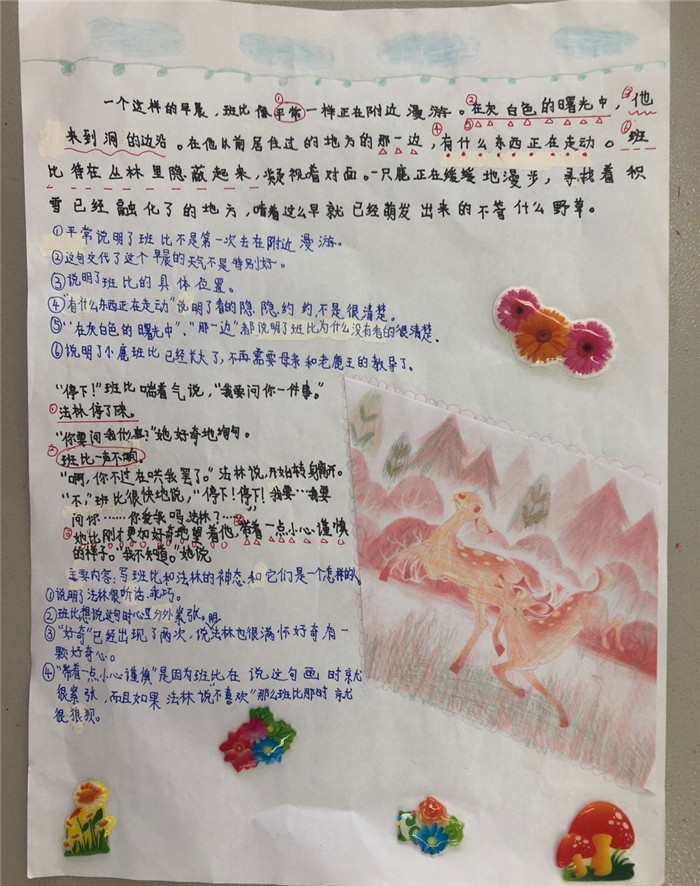 一个这样的早晨，班比像平常①一样正在附近漫游。②在灰白色的曙光中，③他
来到洞的边沿。在他从前居住过的地方的那一边，④⑤有什么东西正在走动。⑥班
比待在丛林里隐蔽起来，凝视着对面。一只鹿正在缓缓地漫步，寻找着积
雪已经融化了的地方，啃着这么早就已经萌发出来的不管什么野草。
①平常说明了班比不是第一次去在附近漫游。
②这句交代了这个早晨的天气不是特别好。
③说明了班比的具体位置。
④“有什么东西正在走动”说明了看的隐隐约约，不是很清楚。
⑤“在灰白色的曙光中”、“那一边”都说明了班比为什么没有看的很清楚。
⑥说明了小鹿班比已经长大了，不再需要母亲和老鹿王的教导了。
“停下！”班比喘着气说，“我要问你一件事。”
①法林停了下来。
“你要问我什么事？”她好奇地询问。
②班比一声不响。
“啊，你不过在哄我罢了。”法林说，开始转身离开。
“不，”班比很快地说，“停下！停下！我要…我要
问你……你爱我吗法林？……”
③她比刚才更加好奇地望着他，④带着一点小心谨慎
的样子。“我不知道。”她说
主要内容：写班比和法林的神态和它们是一个怎样的人
①说明了法林很听话、乖巧。
②班比想说这句时心里分外紧张。
③“好奇”已经出现了两次，说法林也很满怀好奇有一
颗好奇心。
④“带着一点小心谨慎”是因为班比在说这句画时就
很紧张，而且如果法林说“不喜欢”那么班比那时就
很狼狈。